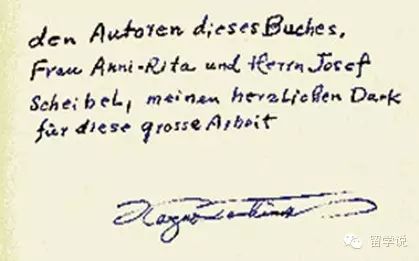 den Autoren dieses Buches,
Frau Anni-Rita und Herrn Josef
Scheibel, meinen herzlichen Dank
für diese grosse Arbeit
留学说